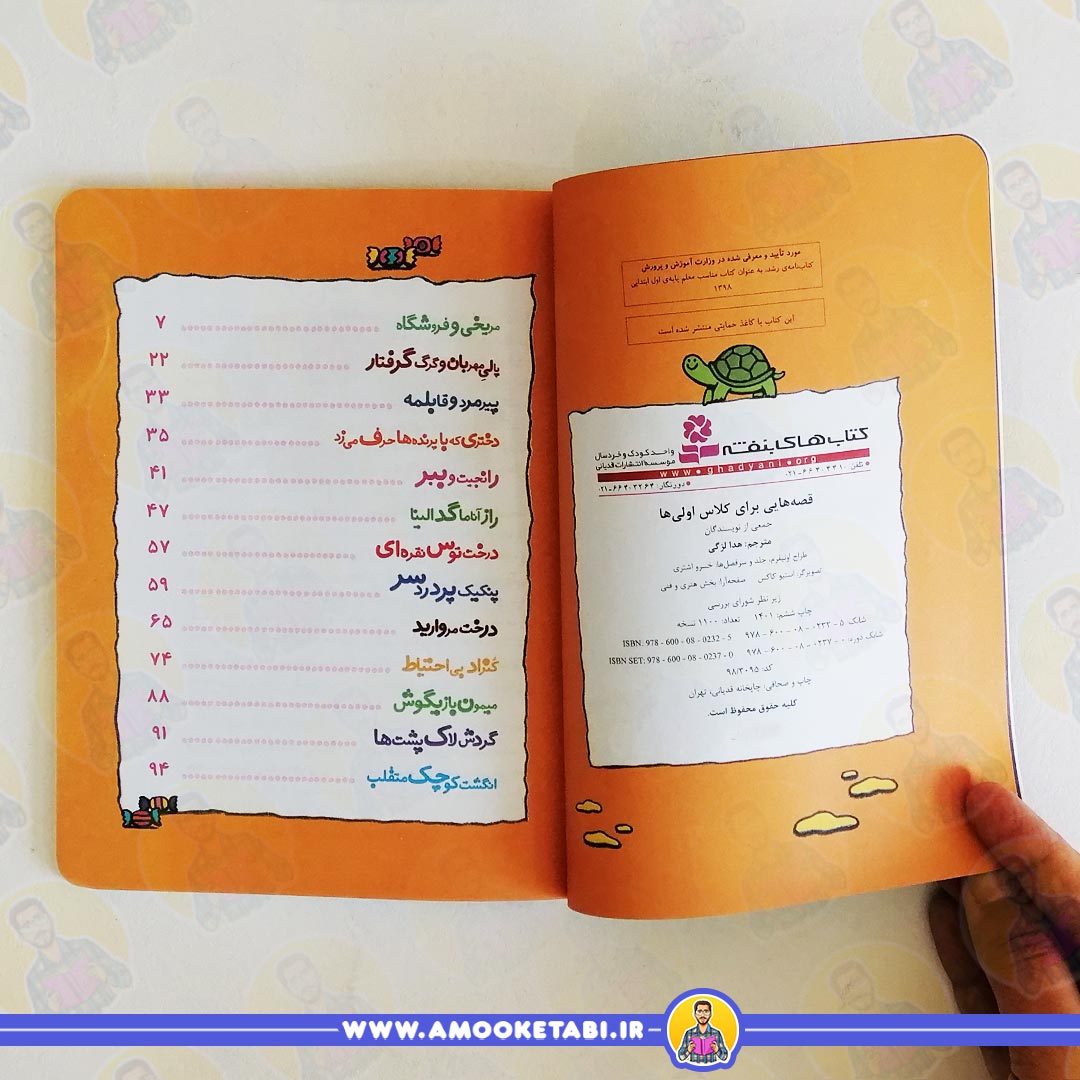 مورد تأیید و معرفی شده در وزارت آموزش و پرورش
کتاب‌نامه‌ی رشد، به عنوان کتاب مناسب معلم پایه‌ی اول ابتدایی
۱۳۹۸
این کتاب با کاغذ حمایتی منتشر شده است
کتاب‌های بنفشه
واحد کودک و خردسال
موسسه انتشارات قدیانی
www.ghadyani.org
تلفن: ۶۶۴۰۴۴۱۰-۰۲۱
دورنگار: ۶۶۴۰۳۲۶۴-۰۲۱
قصه‌هایی برای کلاس اولی‌ها
جمعی از نویسندگان
مترجم: هدا لزگی
طراح اونیفرم، جلد و سرفصل‌ها: خسرو اشتری
تصویرگر: استیو کاکس صفحه‌آرا: بخش هنری و فنی
زیر نظر شورای بررسی
چاپ ششم: ۱۴۰۱ تعداد: ۱۱۰۰ نسخه
شابک: ۵ - ۰۲۳۲ - ۰۸ - ۶۰۰ - ۹۷۸ ISBN: 978 - 600 - 08 - 0232 - 5
شابک دوره: ۰ - ۰۲۳۷ - ۰۸ - ۶۰۰ - ۹۷۸ ISBN SET: 978 - 600 - 08 - 0237 - 0
کد: ۹۸/۳۰۹۵
چاپ و صحافی: چاپخانه قدیانی، تهران
کلیه حقوق محفوظ است.
مریخی و فروشگاه ۷
پالیِ مهربان و گرگ گرفتار ۲۲
پیرمرد و قابلمه ۳۳
دختری که با پرنده‌ها حرف می‌زد ۳۵
رانجیت و ببر ۴۱
راز آناماگدالینا ۴۷
درخت توس نقره‌ای ۵۷
پیک‌نیک پردردسر ۵۹
درخت مروارید ۶۵
کنراد بی‌احتیاط ۷۴
میمون بازیگوش ۸۸
گردش لاک‌پشت‌ها ۹۱
انگشت کوچک متقلب ۹۴
WWW.AMOOKETABI.IR